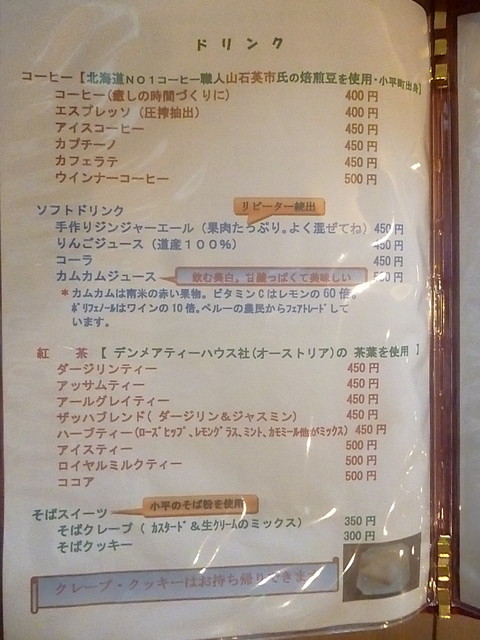 ドリンク
コーヒー【北海道NO1コーヒー職人山石英市氏の焙煎豆を使用・小平町出身】
コーヒー(癒しの時間づくりに) 400円
エスプレッソ(圧搾抽出) 400円
アイスコーヒー 450円
カプチーノ 450円
カフェラテ 450円
ウインナーコーヒー 500円
リピーター続出
ソフトドリンク
手作りジンジャーエール(果肉たっぷり。よく混ぜてね) 450円
りんごジュース(道産100%) 450円
コーラ 450円
カムカムジュース 飲む美白。甘酸っぱくて美味しい 円
*カムカムは南米の赤い果物。ビタミンCはレモンの60倍。
ポリフェノールはワインの10倍。ペルーの農民からフェアトレードして
います。
紅 茶【デンメアティーハウス社(オーストリア)の 茶葉を使用】
ダージリンティー 450円
アッサムティー 450円
アールグレイティー 450円
ザッハブレンド(ダージリン&ジャスミン) 450円
ハーブティー(ローズヒップ、レモングラス、ミント、カモミール他がミックス) 450円
アイスティー 500円
ロイヤルミルクティー 500円
ココア 500円
そばスイーツ 小平のそば粉を使用
そばクレープ(カスタード&生クリームのミックス) 350円
そばクッキー 300円
クレープ・クッキーはお持ち帰りできます